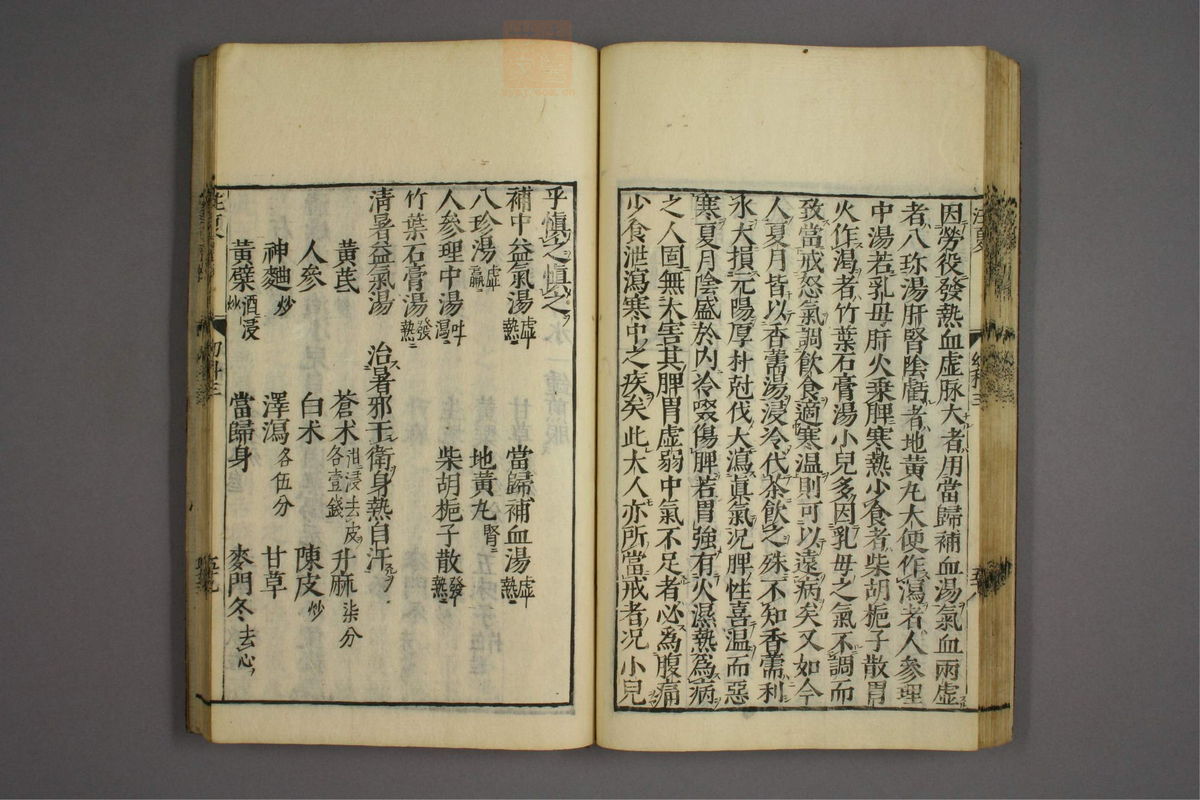 因勞役發熱血虛脉大者用當歸補血湯氣血兩虛
者八珎湯肝腎陰虧者地黃丸大便作瀉者人參理
中湯若乳母肝火乘脾寒熱少食者柴胡梔子散胃
火作渴者竹葉石膏湯小兒多因乳母之氣不調而
致當戒怒氣調飲食適寒温則可以遠病矣又如今
人夏月皆以香薷湯浸冷代茶飲之殊不知香薷利
水大損元陽厚朴尅伐大瀉真氣况脾性喜温而惡
寒夏月陰盛於内冷啜傷脾若胃強有火濕熱為病
之人固無大害其脾胃虛弱中氣不足者必為腹痛
少食泄瀉寒中之疾矣此大人亦所當戒者况小兒
乎慎之慎之
補中益氣湯虛熱 當歸補血湯虛熱
八珍湯虛羸 地黃丸腎
人參理中湯吐瀉 柴胡梔子散發熱
竹葉石膏湯發熱
清暑益氣湯 治暑邪干衛身熱自汗
黃芪 蒼术泔浸去皮各壹錢 升麻柒分
人參 白术 陳皮炒
神麯炒 澤瀉各伍分 甘草
黃蘗酒浸炒 當歸身 麥門冬去心